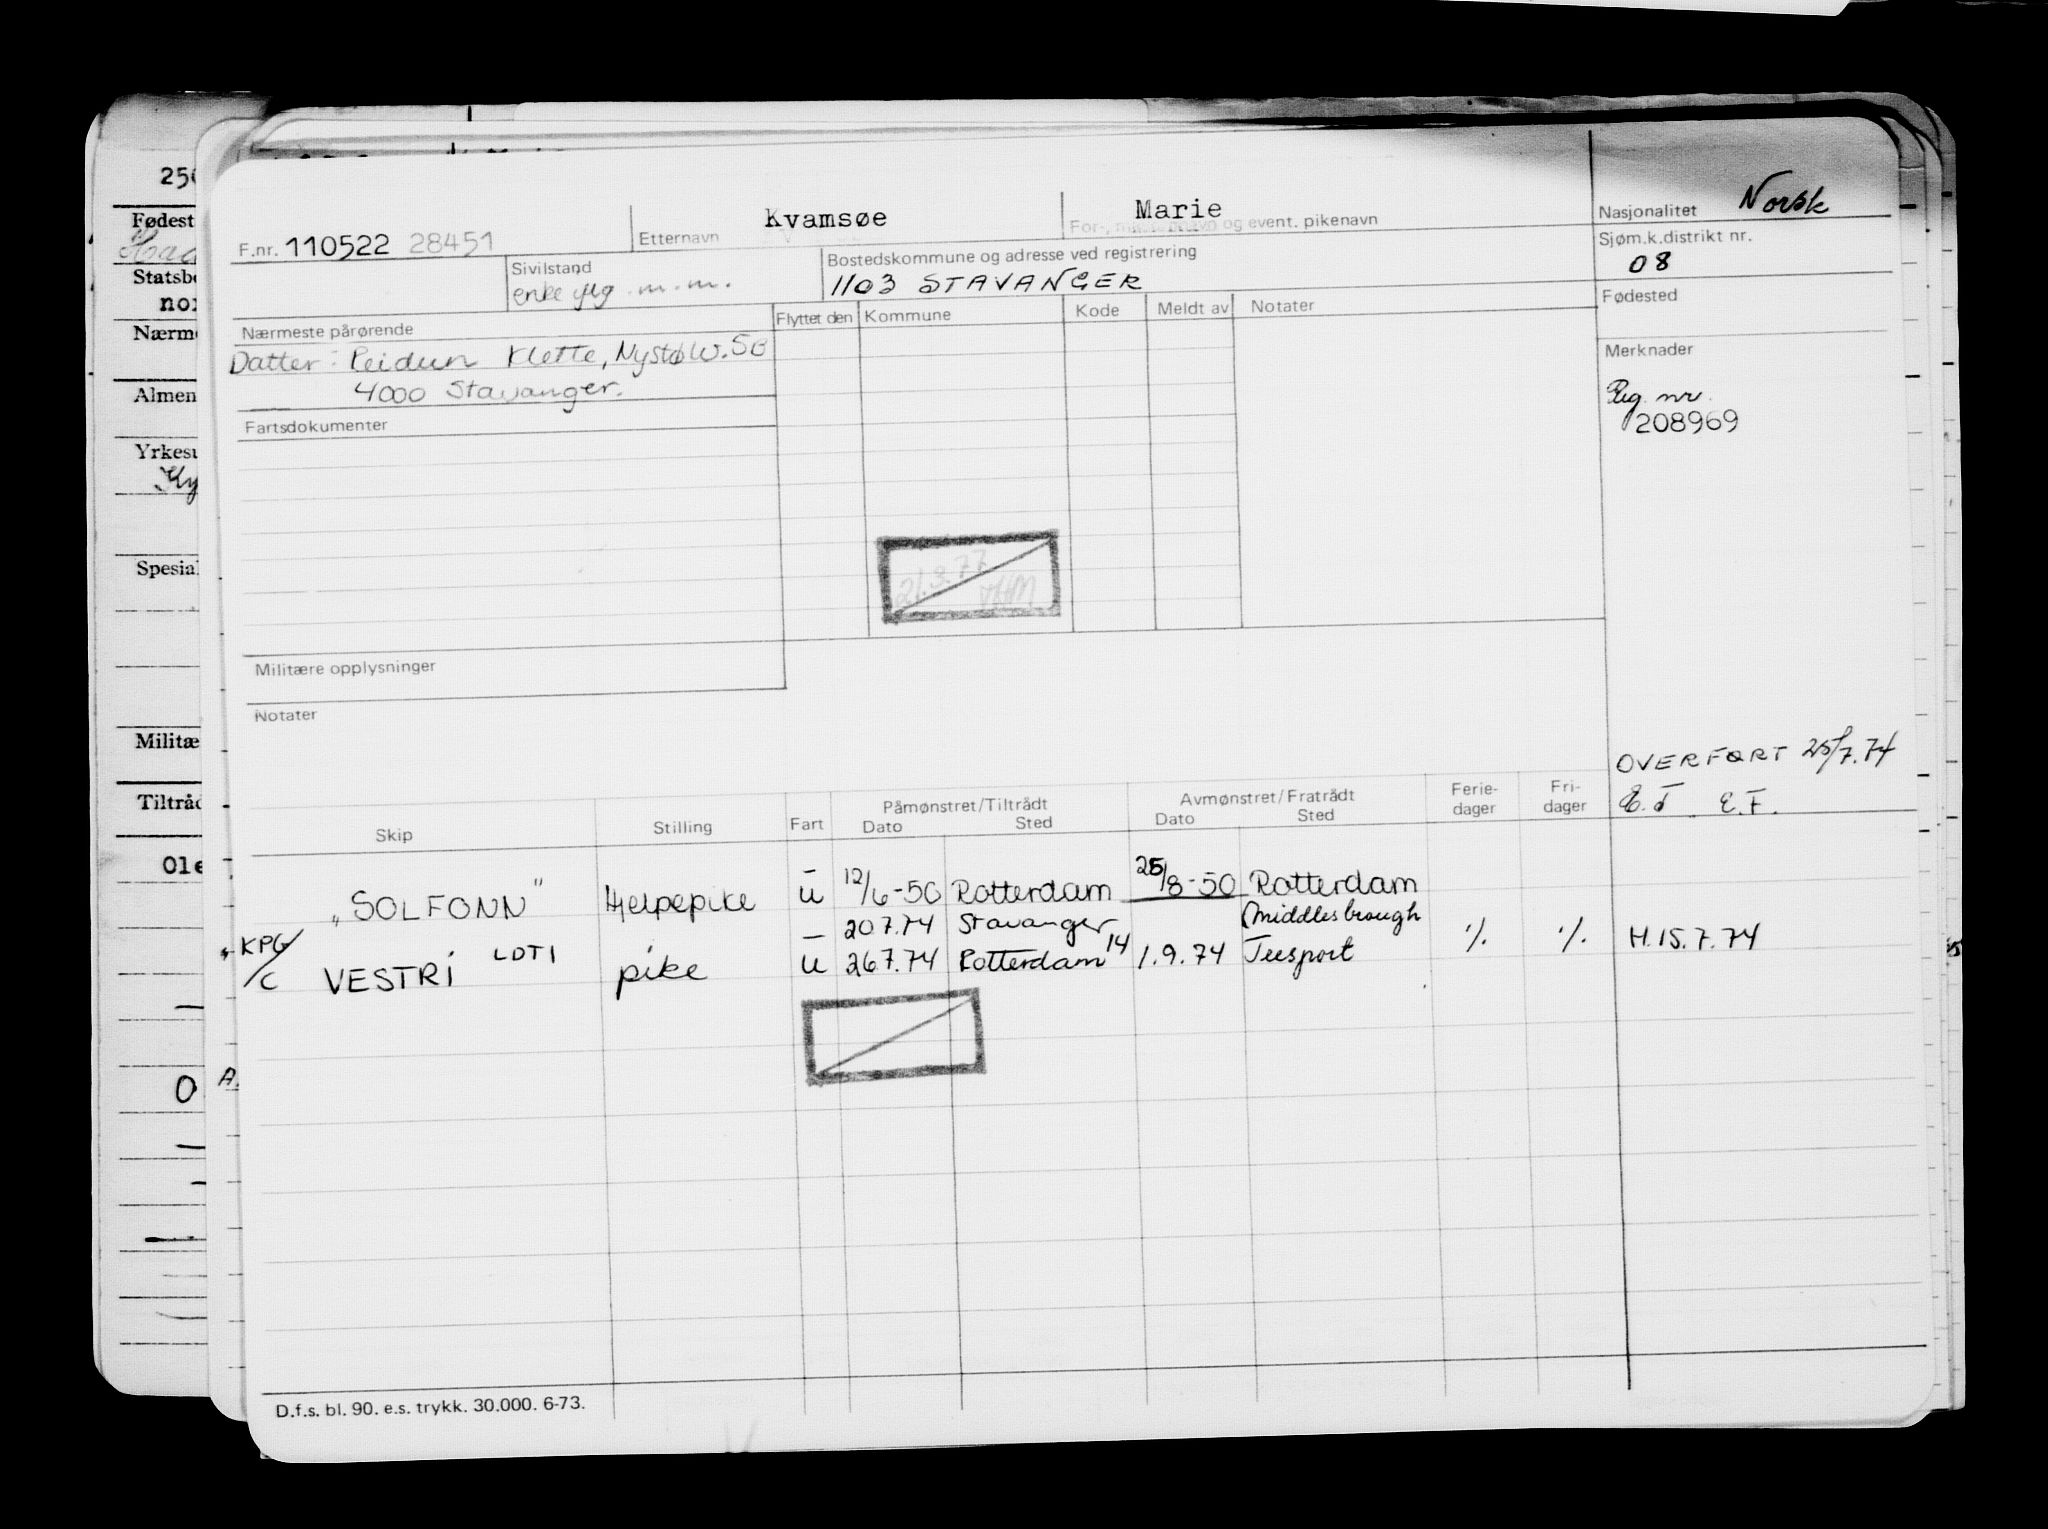 Kvamsøe Marie
Nasjonalitet Norsk
F.nr. 110522 28451 Etternavn For-, mellomnavn og event. pikenavn
Sjøm.k.distrikt nr.
08
Sivilstand
enke m.m.
Bostedskommune og adresse ved registrering
1103 STAVANGER
Fødested
Nærmeste pårørende
Flyttet den Kommune Kode Meldt av Notater
Datter: Reidun Klette,
4000 Stavanger.
Merknader
Reg. nr.
208969
Fartsdokumenter
21.3.77
Militære opplysninger
Notater
OVERFØRT 25/7.74
E.F.
Skip Stilling Fart Påmønstret/Tiltrådt Avmønstret/Fratrådt Ferie-dager Fri-dager
Dato Sted Dato Sted
"SOLFONN" Hjelpepike U 12/6-50 Rotterdam 25/8-50 Rotterdam
20.7.74 Stavanger Middlesbrough
KPG/C VESTRI LDTI pike U 26.7.74 Rotterdam 14 1.9.74 Teesport ./. ./. H.15.7.74
D.f.s. bl. 90. e.s. trykk. 30.000. 6-73.
250
Fødest
Statsbo
nor
Nærme
Almen
Yrkesu
Ky
Spesial
Militæ
Tiltråd
Ole
0
A.